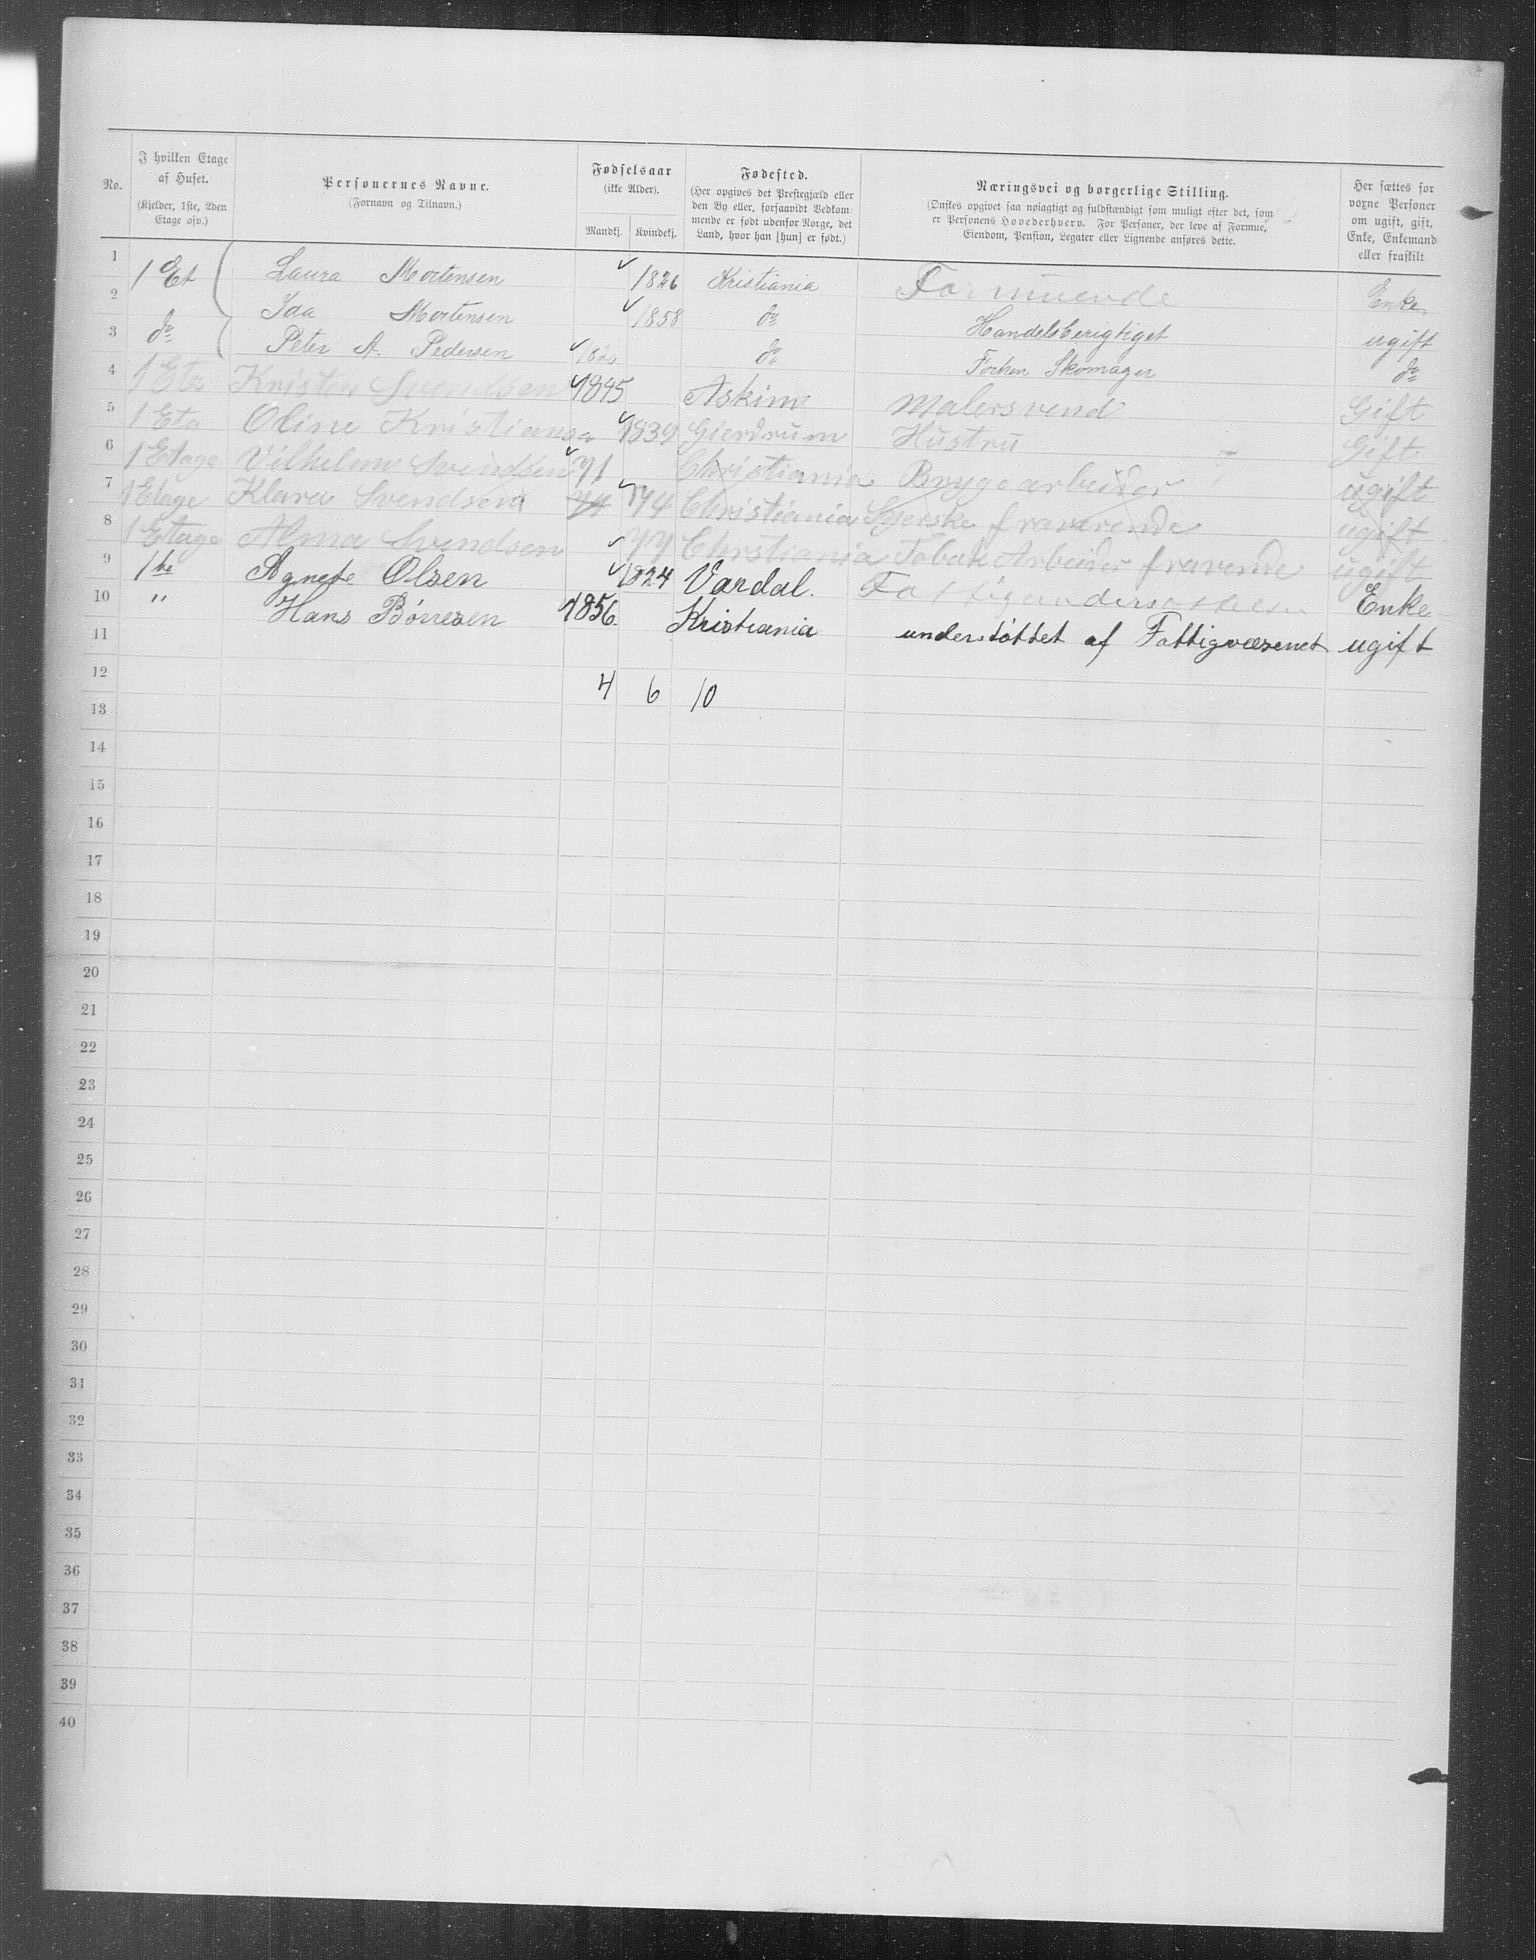 No. I hvilken Etage af Huset. (Kjelder, 1ste, 2den Etage osv.) Personernes Navne. (Fornavn og Tilnavn.) Fødselsaar (ikke Alder). Mandkj. Kvindekj. Fødested. (Her opgives det Prestegjæld eller den By eller, forsaavidt Vedkommende er født udenfor Norge, det Land, hvor han [hun] er født.) Næringsvei og borgerlige Stilling. (Ønskes opgivet saa nøiagtigt og fuldstændigt som muligt efter det, som er Personens Hovederhverv. For Personer, der leve af Formue, Eiendom, Pension, Legater eller Lignende anføres dette. Her sættes for voxne Personer om ugift, gift, Enke, Enkemand eller fraskilt
1 1 Et Laura Mortensen 1826 Kristiania Formuende Enke
2 Ida Mortensen 1858 do Handelsberigtiget ugift
3 do Peter A. Pedersen do Forhen Skomager do
4 1 Eta Kristen Svendsen 1845 Askim Malersvend Gift
5 1 Eta Oline Kristiansa 1839 Gierdrum Hustru Gift
6 1 Etage Vilhelm Svendsen 71 Christiania Brygearbeider ugift
7 1 Etage Klara Svendsen 74 Christiania Syerske fraverende ugift
8 1 Etage Alma Svendsen 77 Chrstiania Tobak Arbeider fraverende ugift
9 1ste Agnete Olsen 1824 Vardal. Fattigunderstttelse Enke
10 " Hans Börresen 1856. Kristiania understöttet af Fattigvæsenet ugift
11
12 4 6 10
13
14
15
16
17
18
19
20
21
22
23
24
25
26
27
28
29
30
31
32
33
34
35
36
37
38
39
40